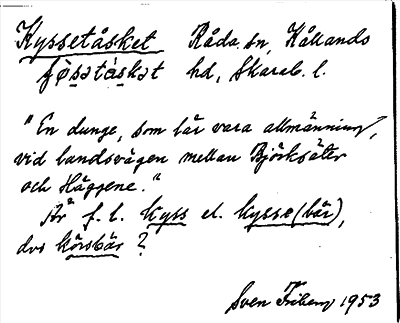 Kyssetåsket Råda sn, Kållands
hd, Skarab. l.
"En dunge, som lär vara allmänning,
vid landsvägen mellan Björksäter
och Häggene."
Är f. l. kyss el. kysse(bär),
dvs körsbär?
Sven Friberg 1953